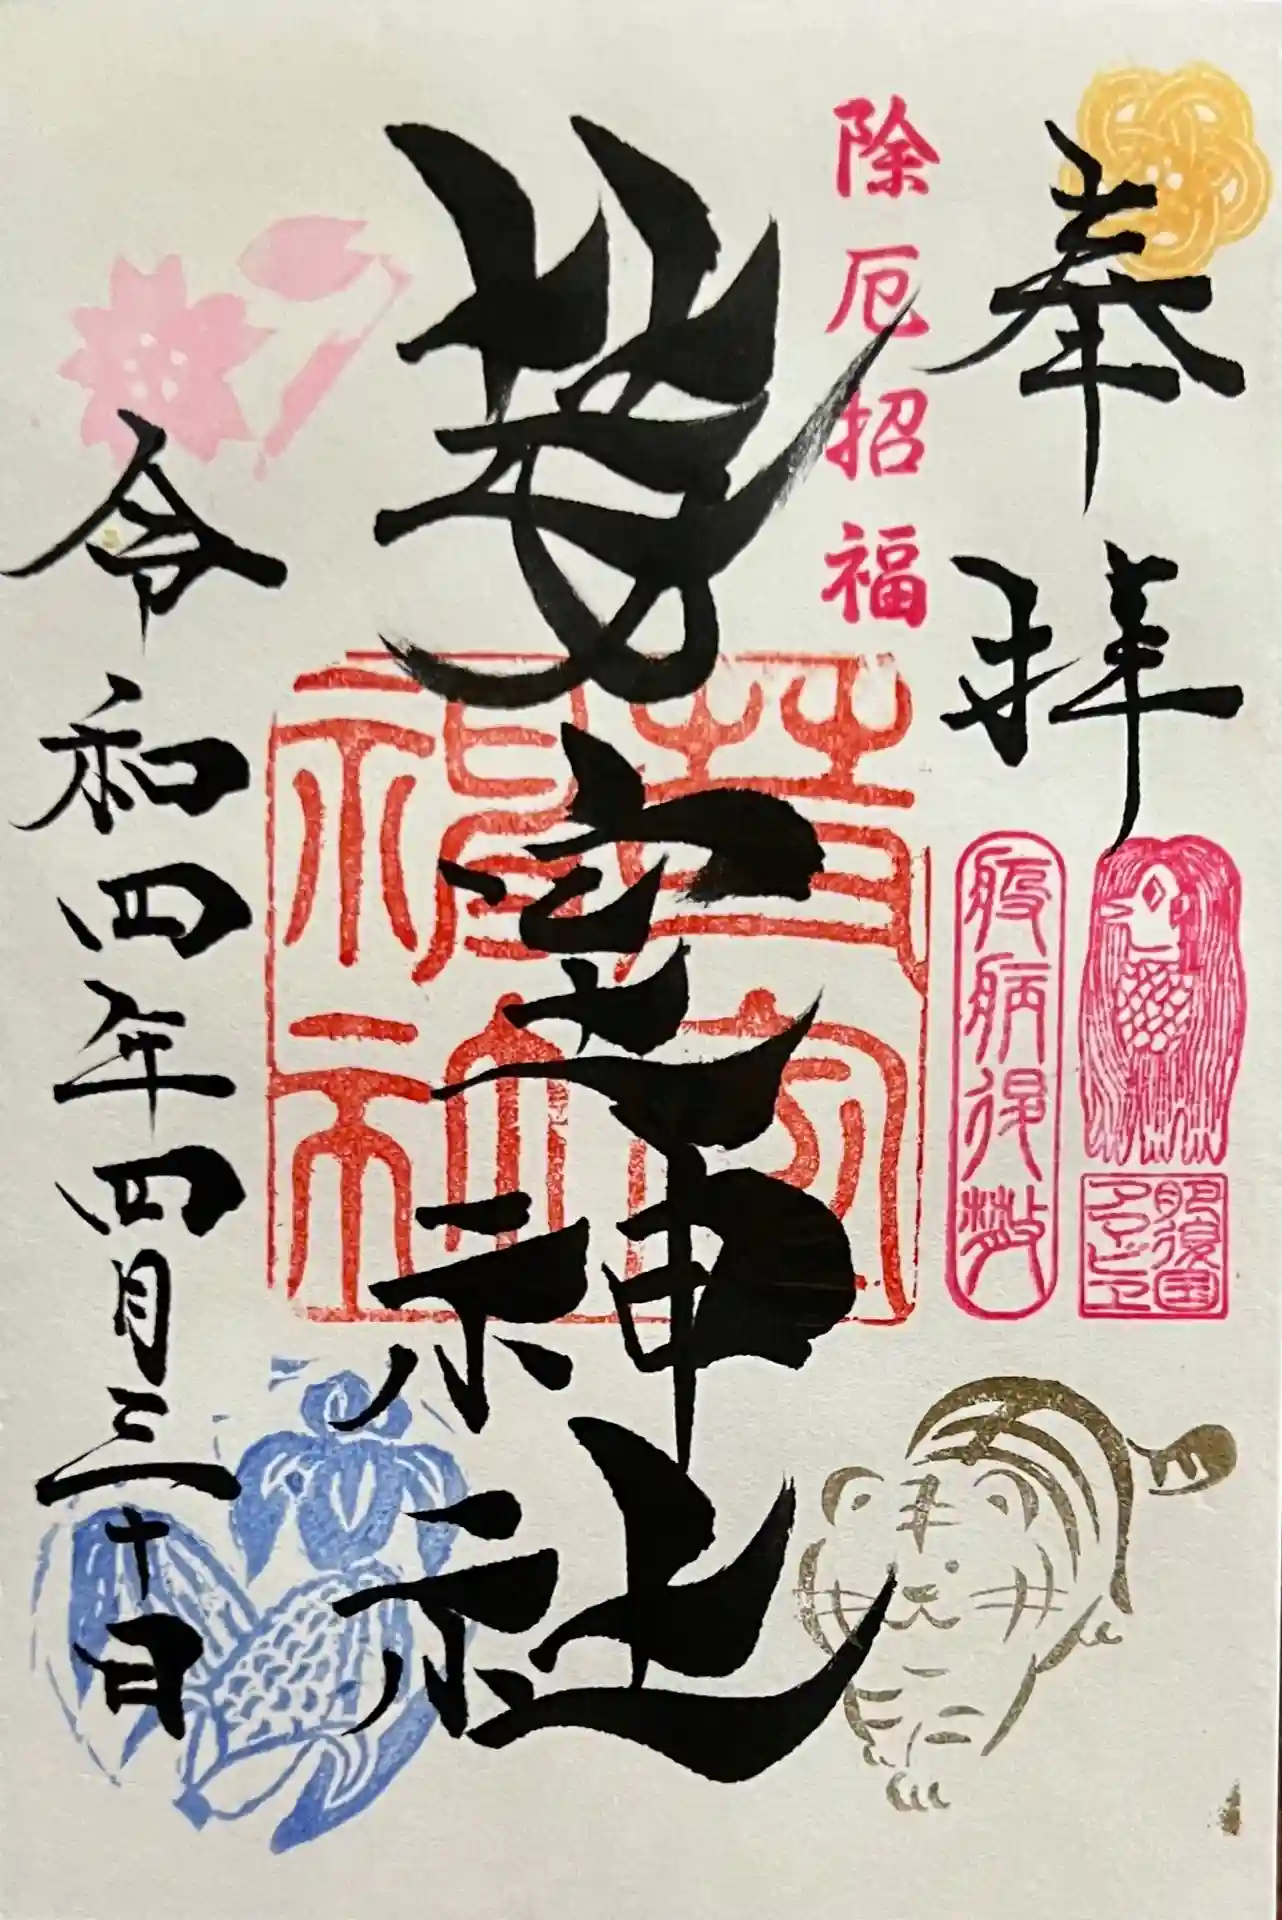 奉拝
除厄招福
疫病退散
肥後国
アマビエ
神社
令和四年四月三十日